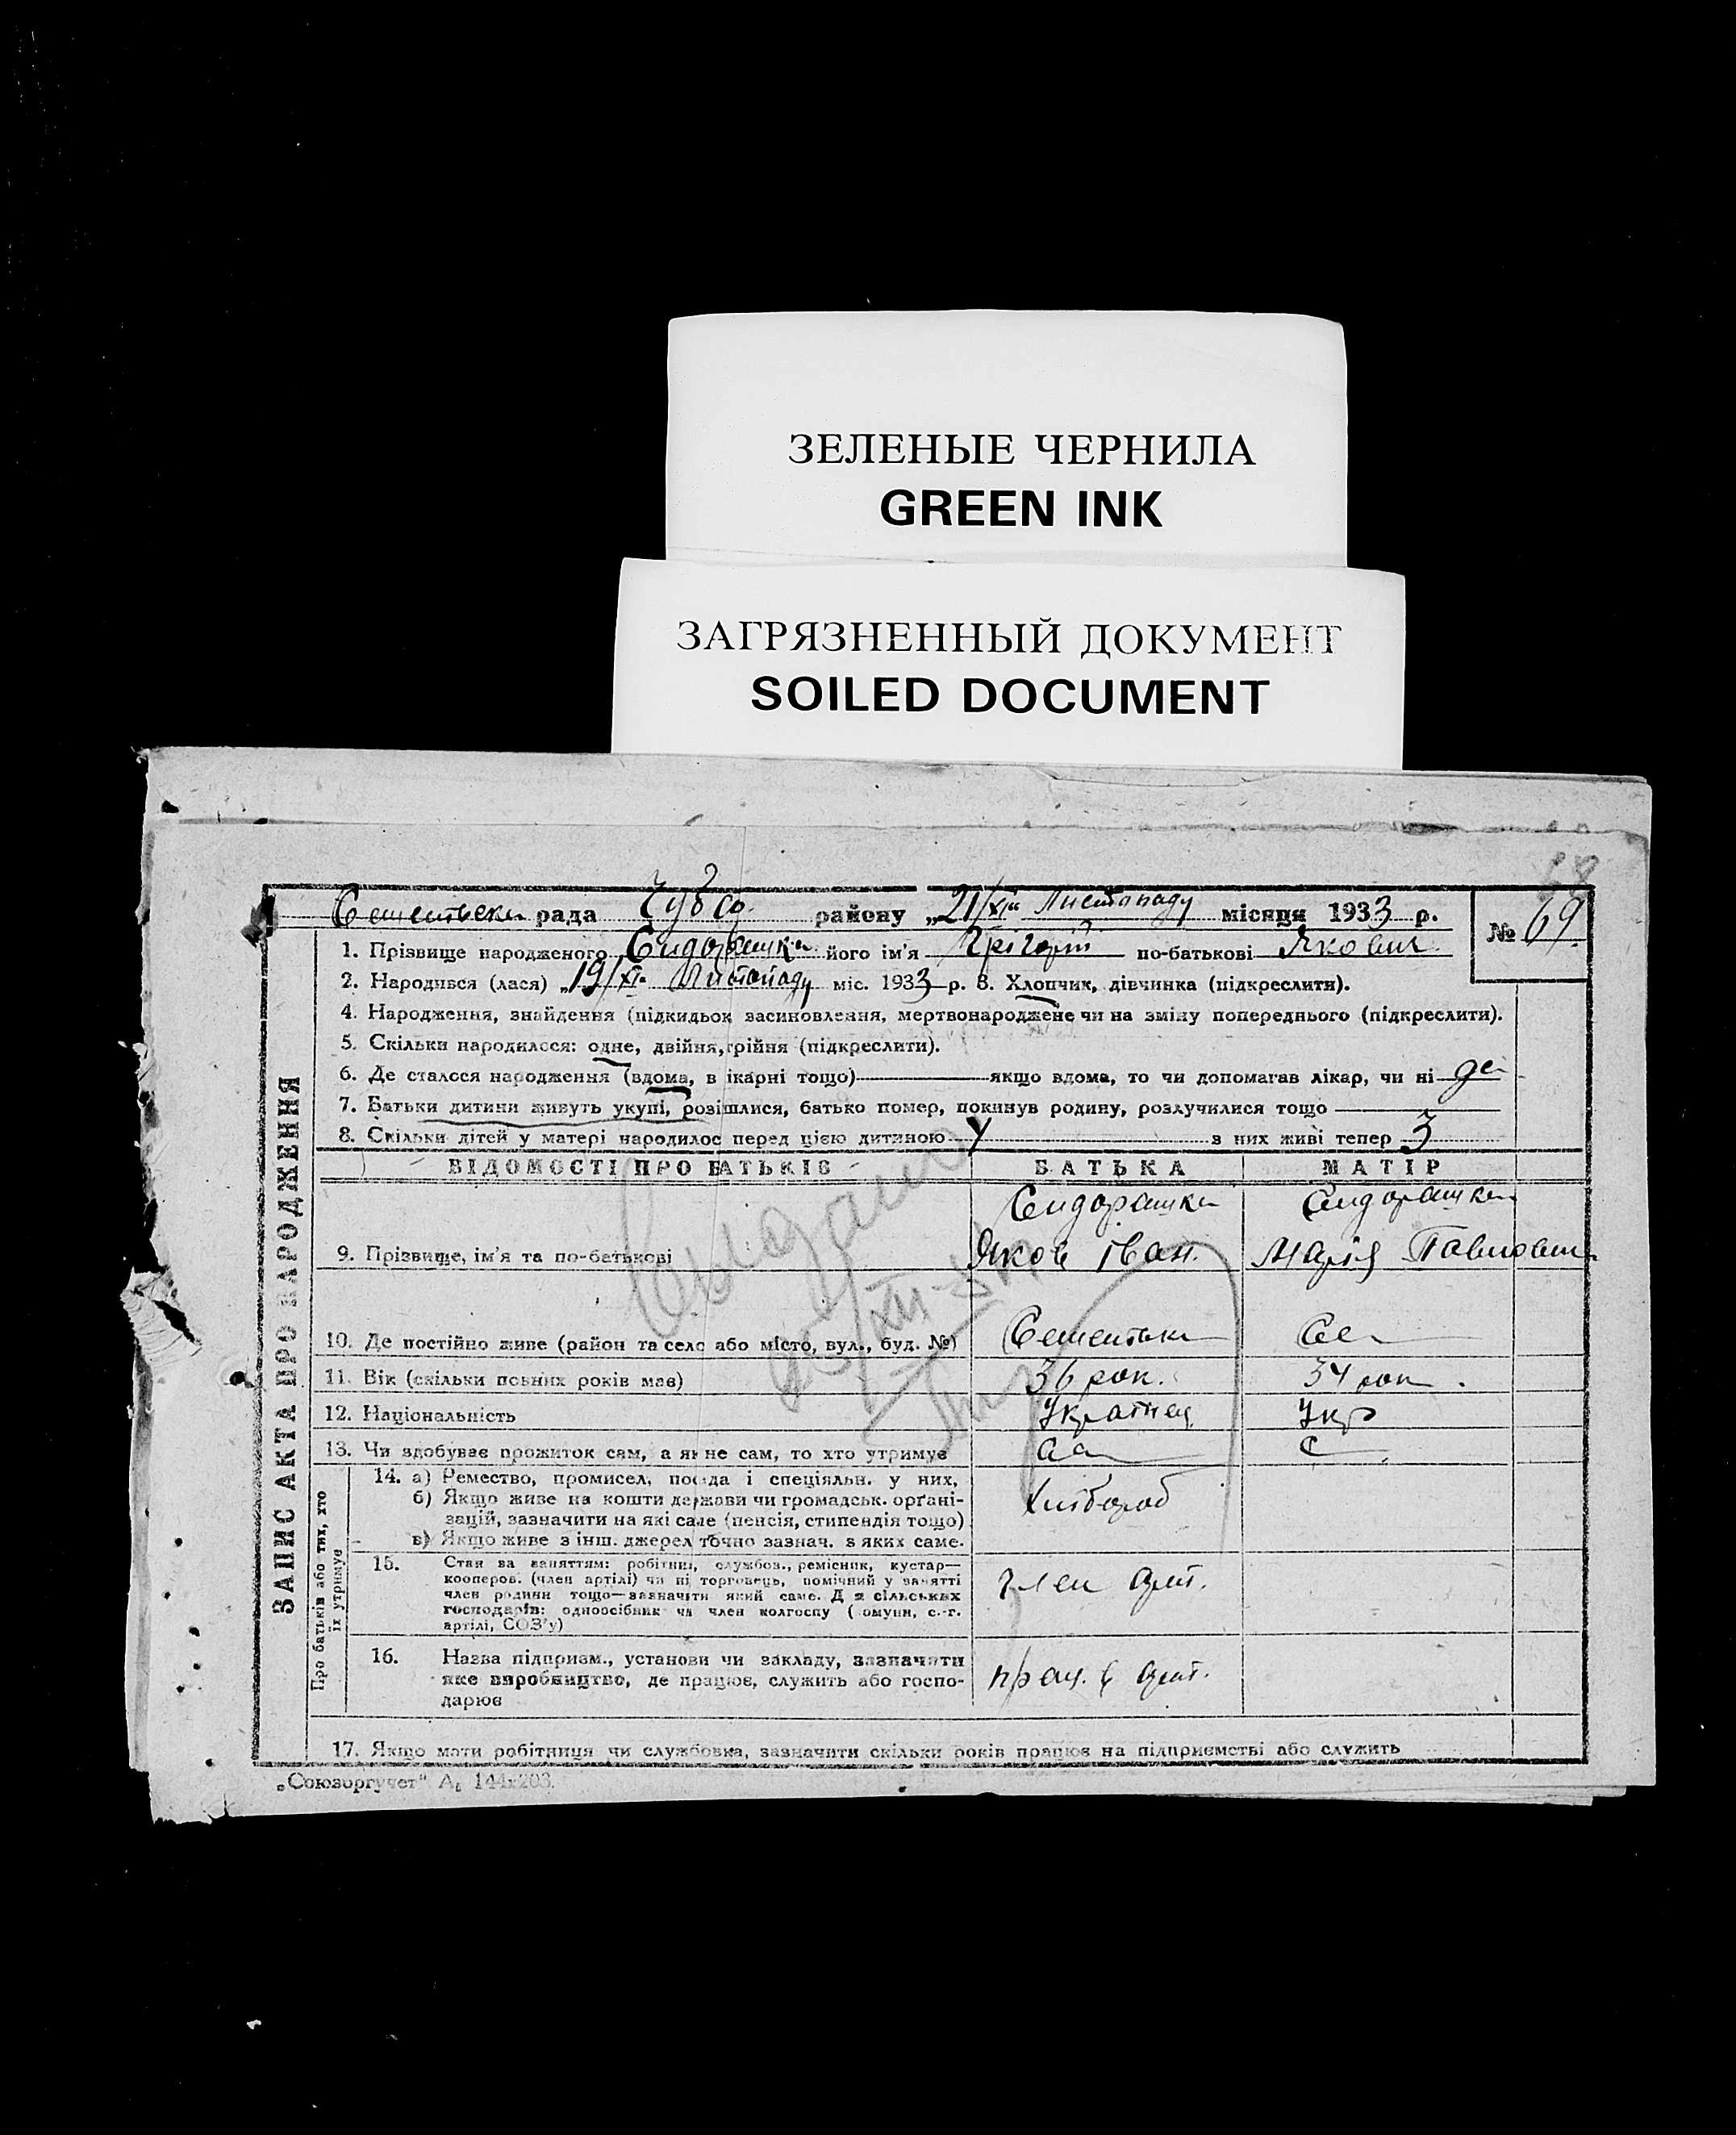 ЗЕЛЕНЫЕ ЧЕРНИЛА
GREEN INK
ЗАГРЯЗНЕННЫЙ ДОКУМЕНТ
SOILED DOCUMENT
68
рада Чубар. району „21/XIго Листопаду місяця 1933 р. № 69.
1. Прізвище народженого його ім'я Грігорій по-батькові Якович
2. Народився (лася) „19/XIго Листопаду міс. 1933 р. 3. Хлопчик, дівчинка (підкреслити).
4. Народження, знайдення (підкидьок засиновлення, мертвонароджене чи на зміну попереднього (підкреслити).
5. Скільки народилося: одне, двійня, трійня (підкреслити).
6. Де сталося народження (вдома, в ікарні тощо) якщо вдома, то чи допомагав лікар, чи ні
7. Батьки дитини живуть укупі, розішлися, батько помер, покинув родину, розлучилися тощо
8. Скільки дітей у матері народилос перед цією дитиною 4 з них живі тепер 3
ВІДОМОСТІ ПРО БАТЬКІВ БАТЬКА МАТІР
9. Прізвище, ім'я та по-батькові Яков Іван. Марія Павловна
10. Де постійно живе (район та село або місто, вул., буд. №)
11. Вік (скільки повних років має) 36 рок. 34 рок.
12. Національність Українец Укр
13. Чи здобуває прожиток сам, а як не сам, то хто утримує
14. а) Ремество, промисел, посада і спеціяльн. у них,
б) Якщо живе на кошти держави чи громадськ. орґані-
зацій, зазначити на які саме (пенсія, стипендія тощо)
в) Якщо живе з інш. джерел точно зазнач. з яких саме.
Хлібороб
15. Стан за заняттям: робітниц, службов., ремісник, кустар—
кооперов. (член артілі) чи ні, торговець, помічний у занятті
член родини тощо—зазначіти який саме. Для сільських
господарів: одноосібник чи член колгоспу (омуни, с.-г.
артілі, СОЗ'у)
член арт.
16. Назва підприєм., установи чи закладу, зазначити
яке виробництво, де працює, служить або госпо-
дарює
прац. в арт.
17. Якщо мати робітниця чи службовка, зазначити скільки років працює на підприємстві або служить
ЗАПИС АКТА ПРО НАРОДЖЕННЯ
Про батьків або тих, хто
їх утримує
„Союзоргучет" А₆ 144х203.